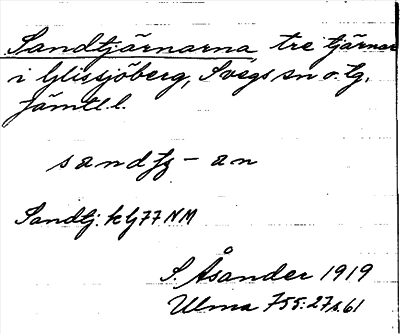 Sandtjärnarna, tre tjärnar
i Glissjöberg, Svegs sn o. tg.
Jämtl. l.
sandtj - an
Sandtj: klj77NM
S. Åsander 1919
Ulma 755:27 s. 61